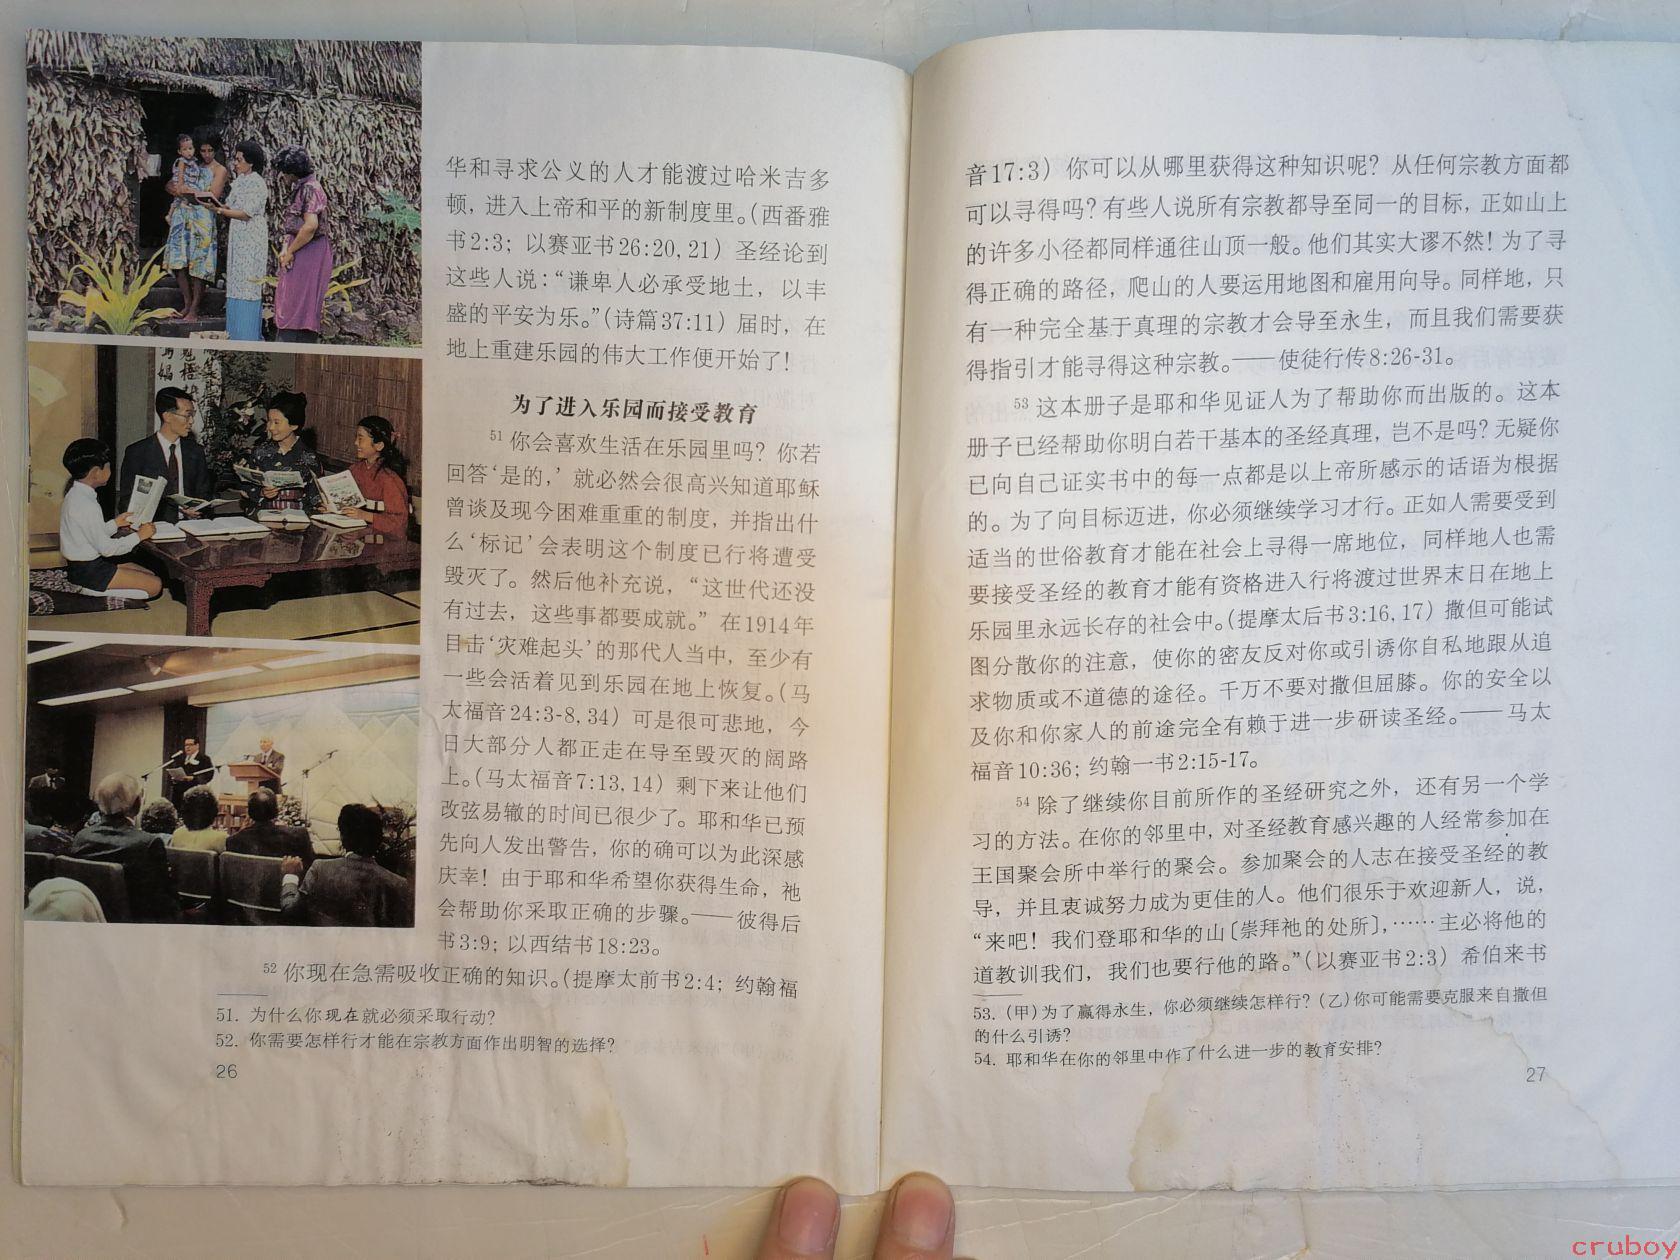 华和寻求公义的人才能渡过哈米吉多
顿，进入上帝和平的新制度里。(西番雅
书2:3；以赛亚书26:20,21）圣经论到
这些人说：“谦卑人必承受地土，以丰
盛的平安为乐。”(诗篇37:11）届时，在
地上重建乐园的伟大工作便开始了！
为了进入乐园而接受教育
51 你会喜欢生活在乐园里吗？你若
回答‘是的，’就必然会很高兴知道耶稣
曾谈及现今困难重重的制度，并指出什
么‘标记’会表明这个制度已行将遭受
毁灭了。然后他补充说，“这世代还没
有过去，这些事都要成就。”在1914年
目击‘灾难起头’的那代人当中，至少有
一些会活着见到乐园在地上恢复。(马
太福音24:3-8,34）可是很可悲地，今
日大部分人都正走在导至毁灭的阔路
上。(马太福音7:13,14）剩下来让他们
改弦易辙的时间已很少了。耶和华已预
先向人发出警告，你的确可以为此深感
庆幸！由于耶和华希望你获得生命，祂
会帮助你采取正确的步骤。——彼得后
书3:9；以西结书18:23。
52 你现在急需吸收正确的知识。(提摩太前书2:4；约翰福
51. 为什么你现在就必须采取行动？
52. 你需要怎样行才能在宗教方面作出明智的选择？
26
音17:3）你可以从哪里获得这种知识呢？从任何宗教方面都
可以寻得吗？有些人说所有宗教都导至同一的目标，正如山上
的许多小径都同样通往山顶一般。他们其实大谬不然！为了寻
得正确的路径，爬山的人要运用地图和雇用向导。同样地，只
有一种完全基于真理的宗教才会导至永生，而且我们需要获
得指引才能寻得这种宗教。——使徒行传8:26-31。
53 这本册子是耶和华见证人为了帮助你而出版的。这本
册子已经帮助你明白若干基本的圣经真理，岂不是吗？无疑你
已向自己证实书中的每一点都是以上帝所感示的话语为根据
的。为了向目标迈进，你必须继续学习才行。正如人需要受到
适当的世俗教育才能在社会上寻得一席地位，同样地人也需
要接受圣经的教育才能有资格进入行将渡过世界末日在地上
乐园里永远长存的社会中。(提摩太后书3:16,17）撒但可能试
图分散你的注意，使你的密友反对你或引诱你自私地跟从追
求物质或不道德的途径。千万不要对撒但屈膝。你的安全以
及你和你家人的前途完全有赖于进一步研读圣经。——马太
福音10:36；约翰一书2:15-17。
54 除了继续你目前所作的圣经研究之外，还有另一个学
习的方法。在你的邻里中，对圣经教育感兴趣的人经常参加在
王国聚会所中举行的聚会。参加聚会的人志在接受圣经的教
导，并且衷诚努力成为更佳的人。他们很乐于欢迎新人，说，
“来吧！我们登耶和华的山〔崇拜祂的处所〕，……主必将他的
道教训我们，我们也要行他的路。”(以赛亚书2:3）希伯来书
53. (甲)为了赢得永生，你必须继续怎样行？(乙)你可能需要克服来自撒但
的什么引诱？
54. 耶和华在你的邻里中作了什么进一步的教育安排？
27
cruboy